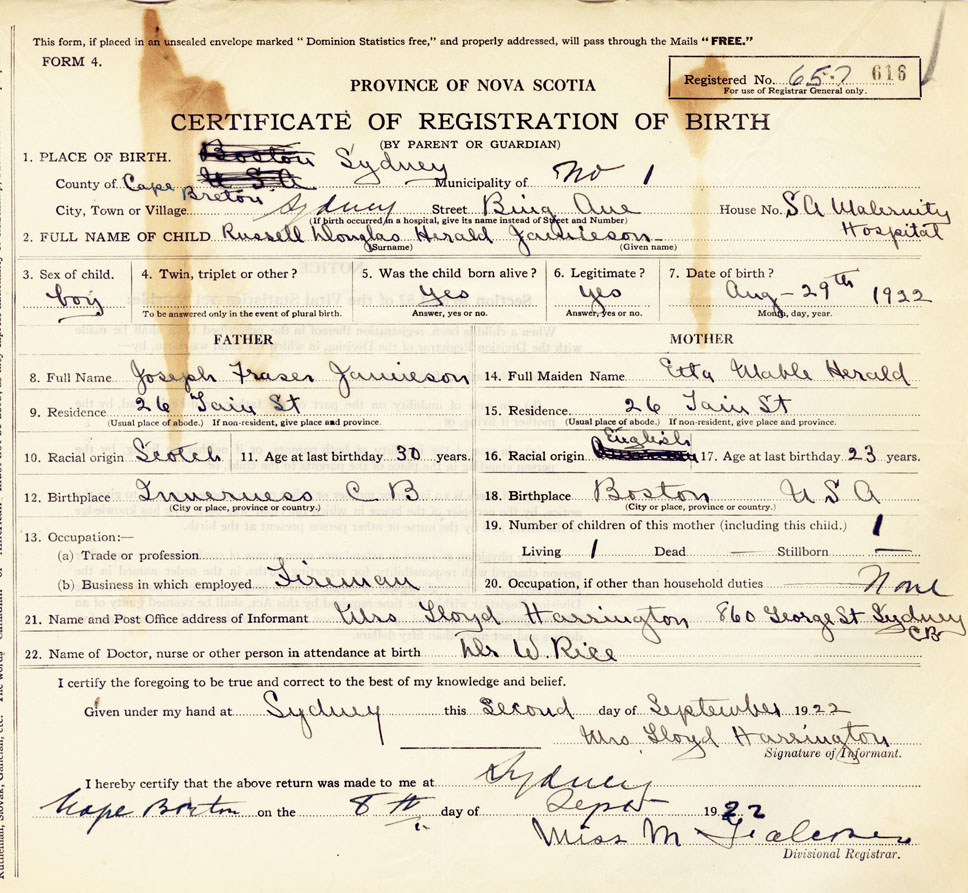 This form, if placed in an unsealed envelope marked “Dominion Statistics free,” and properly addressed, will pass through the Mails “FREE.”
FORM 4.
Registered No. 657 616
For use of Registrar General only.
PROVINCE OF NOVA SCOTIA
CERTIFICATE OF REGISTRATION OF BIRTH
(BY PARENT OR GUARDIAN)
1. PLACE OF BIRTH. Boston Sydney
County of Cape Breton U S A Municipality of No 1
City, Town or Village Sydney Street Bing Ave House No. S A Maternity Hospital
(If birth occurred in a hospital, give its name instead of Street and Number)
2. FULL NAME OF CHILD Russell Douglas Herald Jamieson
(Surname) (Given name)
3. Sex of child. 4. Twin, triplet or other? 5. Was the child born alive? 6. Legitimate? 7. Date of birth?
boy yes yes Aug - 29th 1922
To be answered only in the event of plural birth. Answer, yes or no. Answer, yes or no. Month, day, year.
FATHER MOTHER
8. Full Name Joseph Fraser Jamieson 14. Full Maiden Name Etta Mable Herald
9. Residence 26 Tain St 15. Residence 26 Tain St
(Usual place of abode.) If non-resident, give place and province. (Usual place of abode.) If non-resident, give place and province.
10. Racial origin Scotch 11. Age at last birthday 30 years. 16. Racial origin English 17. Age at last birthday 23 years.
12. Birthplace Inverness C B 18. Birthplace Boston U S A
(City or place, province or country.) (City or place, province or country.)
19. Number of children of this mother (including this child.) 1
13. Occupation:—
(a) Trade or profession Living 1 Dead — Stillborn —
(b) Business in which employed Fireman 20. Occupation, if other than household duties None
21. Name and Post Office address of Informant Mrs Lloyd Harrington 860 George St Sydney CB
22. Name of Doctor, nurse or other person in attendance at birth Mr W. Rice
I certify the foregoing to be true and correct to the best of my knowledge and belief.
Given under my hand at Sydney this Second day of September 1922
Mrs. Lloyd Harrington
Signature of Informant.
I hereby certify that the above return was made to me at Sydney
Cape Breton on the 8th day of Sept 1922
Miss M
Divisional Registrar.